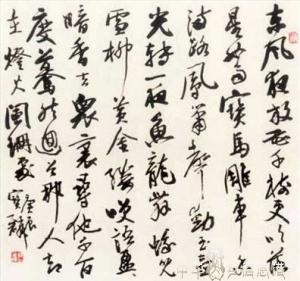 東风夜放花千樹更吹落
星如雨寶馬雕車香
满路鳳簫聲動玉壺
光轉一夜魚龍舞蛾兒
雪柳黄金缕笑語盈盈
暗香去衆裏尋他千百
度蓦然迴首那人却
在燈火闌珊處